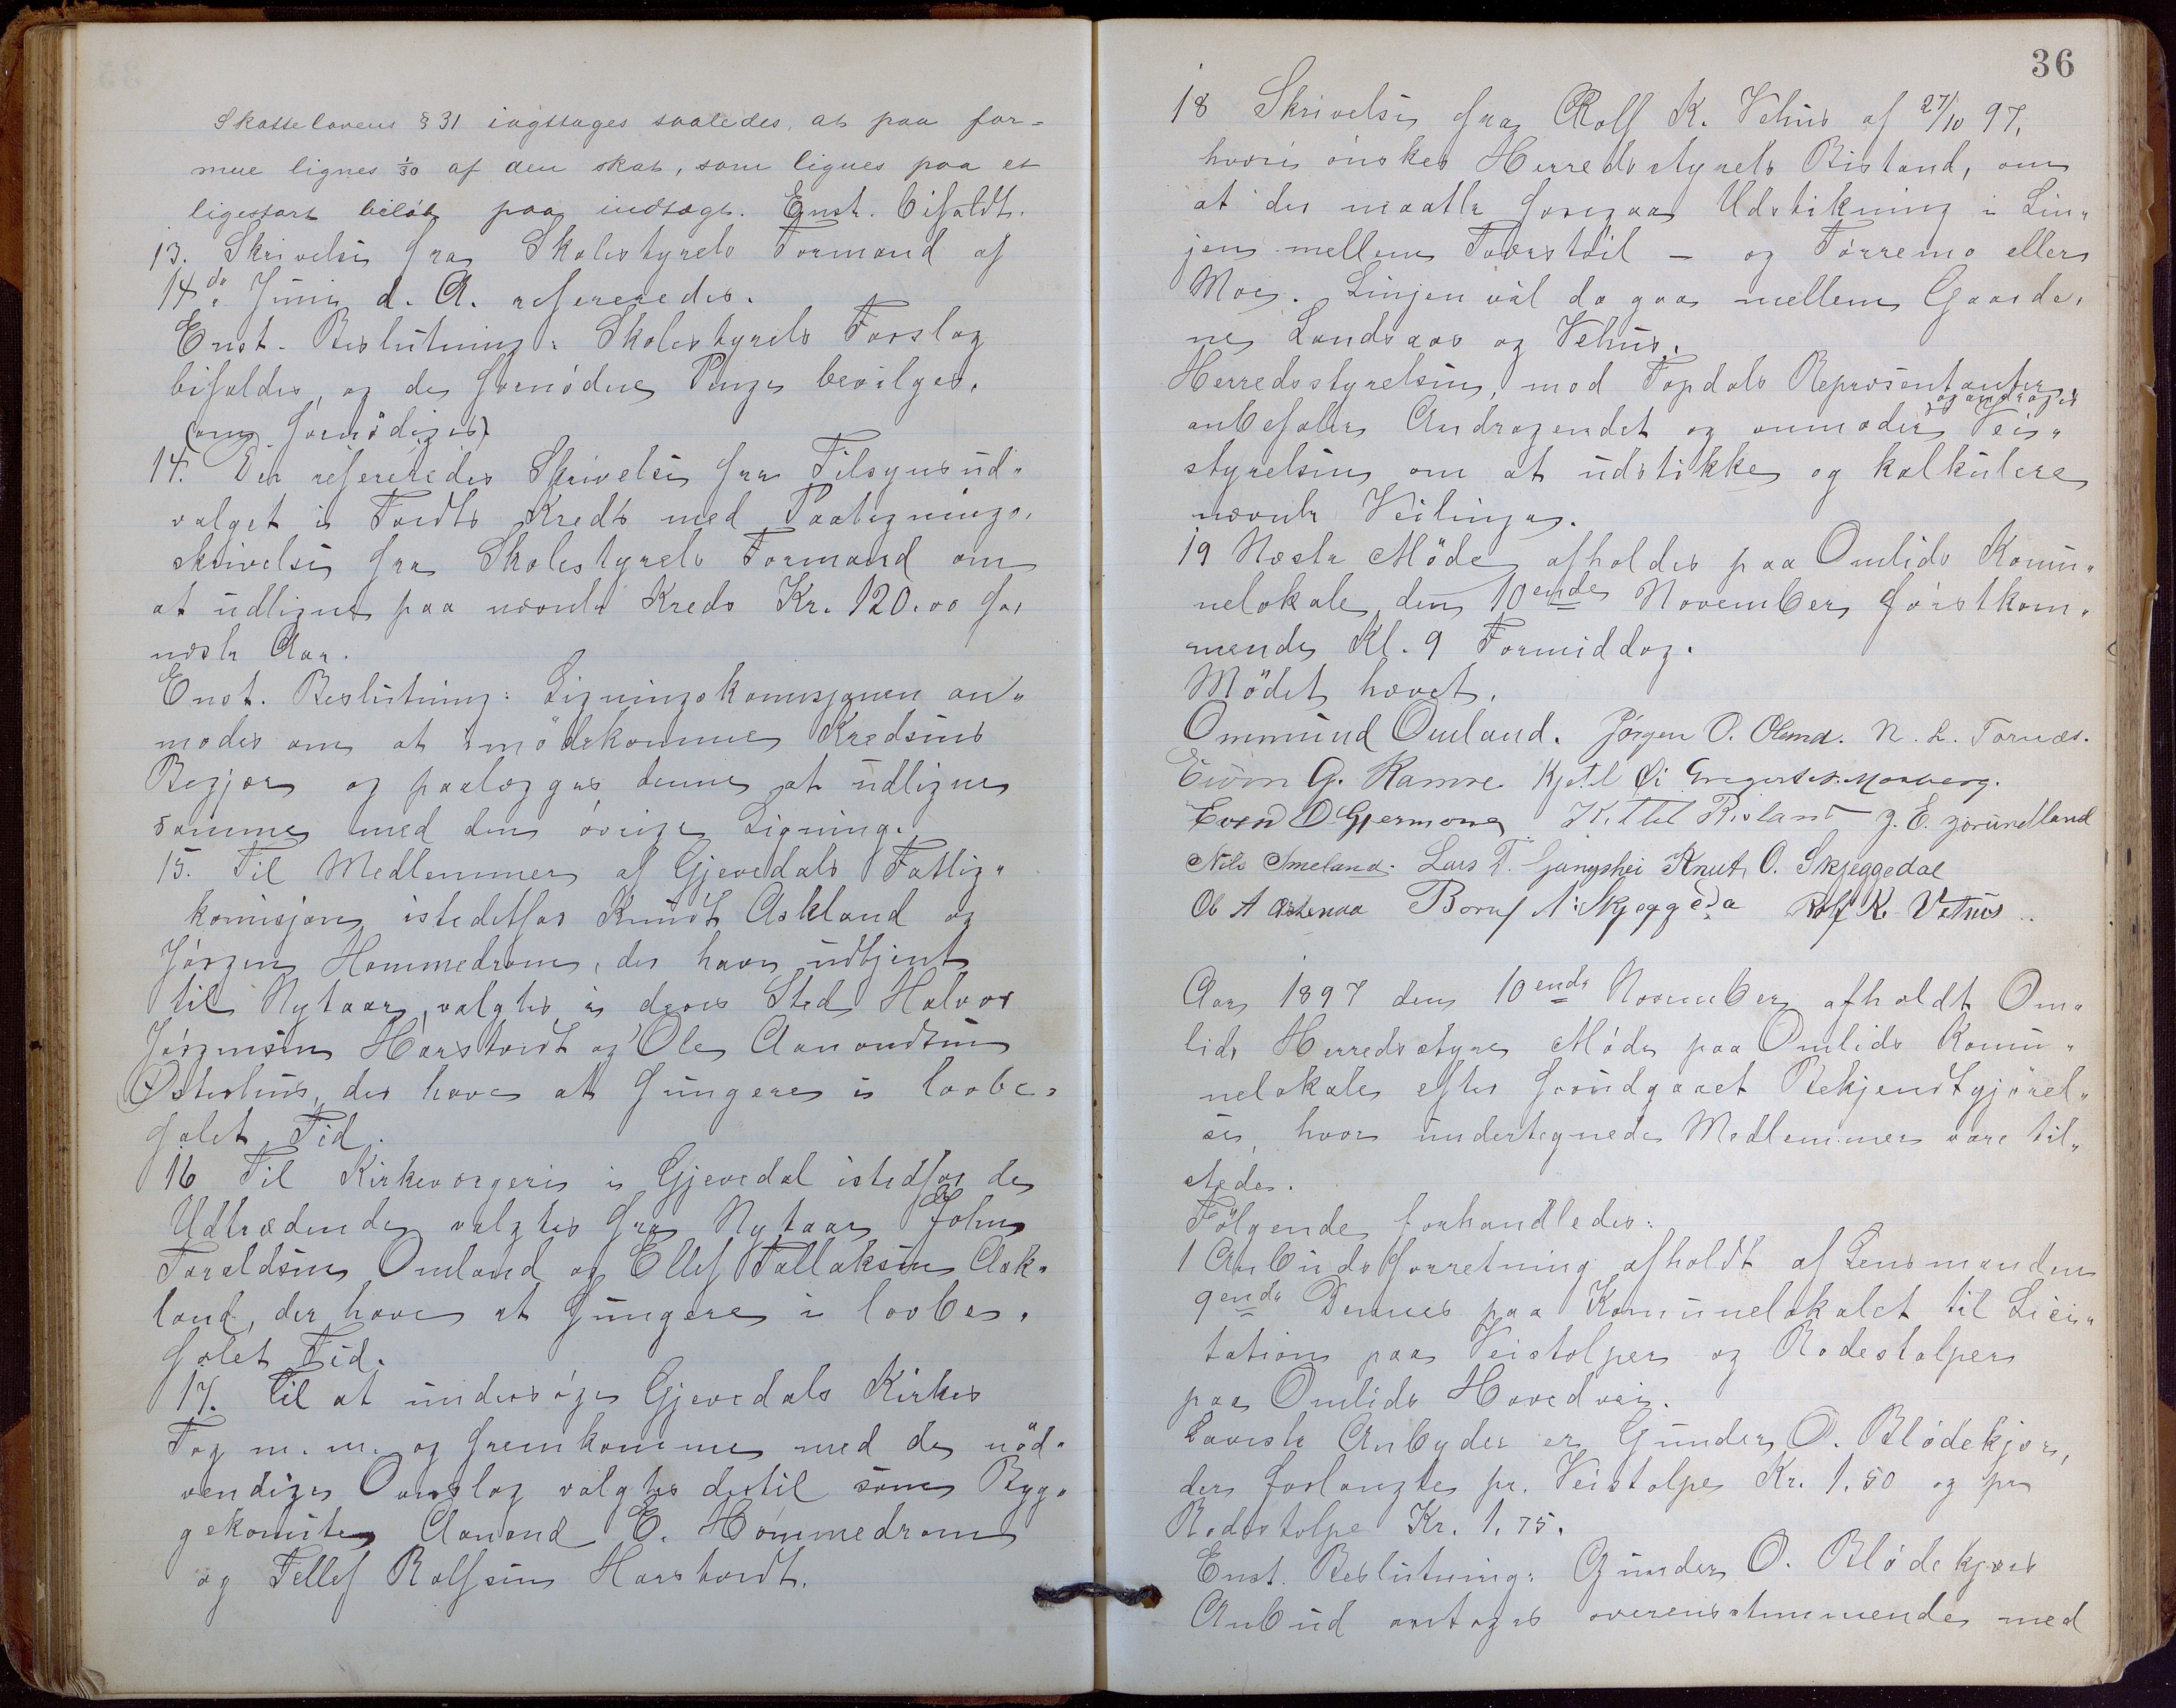 Skattelovens § 31 iagttages saaledes, at paa for-
mue lignes 1/30 af den skat, som lignes paa et
ligestort beløb paa indtægt. Enst. bifaldt.
13. Skrivelse fra Skolestyrets Formand af
14de Juni d. A. refereredes.
Enst. Beslutning: Skolestyrets Forslag
bifaldes, og de fornødne Penge bevilges,
(om fornødiges)
14. Der refereredes Skrivelse fra Tilsynsud-
valget i Tvedts Kreds med Paategnings-
skrivelse fra Skolestyrets Formand om
at udligne paa nævnte Kreds Kr. 120.00 for
næste Aar.
Enst. Beslutning: Ligningskomisjonen an-
modes om at imødekomme Kredsens
Begjær og paalægges denne at udligne
samme med den øvrige Ligning.
15. Til Medlemmer af Gjevedals Fattig-
komisjon istedetfor Knudt Askland og
Jørgen Hommedrom, der have udtjent
til Nytaar, valgtes i deres Sted Halvor
Jørgensen Harstvedt og Ole Aanondsen
Østerhus, der have at fungere i lovbe-
falet Tid.
16 Til Kirkeværgere i Gjevedal istedfor de
Udtrædende valgtes fra Nytaar John
Taraldsen Omland og Ellef Tallaksen Aak-
land, der have at fungere i lovbe-
falet Tid.
17. Til at undersøge Gjevedals Kirkes
Tag m. m. og fremkomme med de nød-
vendige Overslag valgtes dertil som Byg-
gekomite Aanond E. Hommedrom
og Tellef Rolfsen Harstvedt.
36
18 Skrivelse fra Rolf K. Vehus af 27/10 97,
hvori ønskes Herredsstyrets Bistand, om
at der maatte foregaa Udstikning i Lin-
jen mellem Tværstøil - og Tørremo eller
Moe. Linjen vil da gaa mellem Gaarde-
ne Landsaas og Vehus.
Herredsstyrelsen, mod Topdals Repræsentanter,
anbefaler Andragendet og anmoder Vei-
og andrager
styrelsen om at udstikke og kalkulere
nævnte Veilinga.
19 Næste Møde afholdes paa Omlids Komu-
nelokale den 10ende November førstkom-
mende Kl. 9 Formiddag.
Mødet hævet.
Ommund Omland. Jørgen O. N. L. Tornæs.
Eivin G. Ramse Kjetil Øi Gregert
Even O Gjermone Kittel Risland J. E. Jorundland
Nils Smeland. Lars T. Gangshei Knut O. Skjeggedal
Ob A N. Skjeggeda Rolf K. Vehus
Aar 1897 den 10ende November afholdt Om-
lids Herredsstyre Møde paa Omlids Komu-
nelokale efter forudgaaet Bekjendtgjørel-
se, hvor undertegnede Medlemmer vare til-
stede.
Følgende forhandledes:
1 Anbudsforretning afholdt af Lensmanden
9ende Dennes paa Komunelokalet til Lici-
tation paa Veistolper og Rodestolper
paa Omlids Hovedvei.
Laveste Anbyder er Gunder O. Blødekjær,
der forlangte pr. Veistolpe Kr. 1.50 og pr
Rodestolpe Kr. 1.75.
Enst. Beslutning: Gunder O. Blødekjærs
Anbud antages overensstemmende med